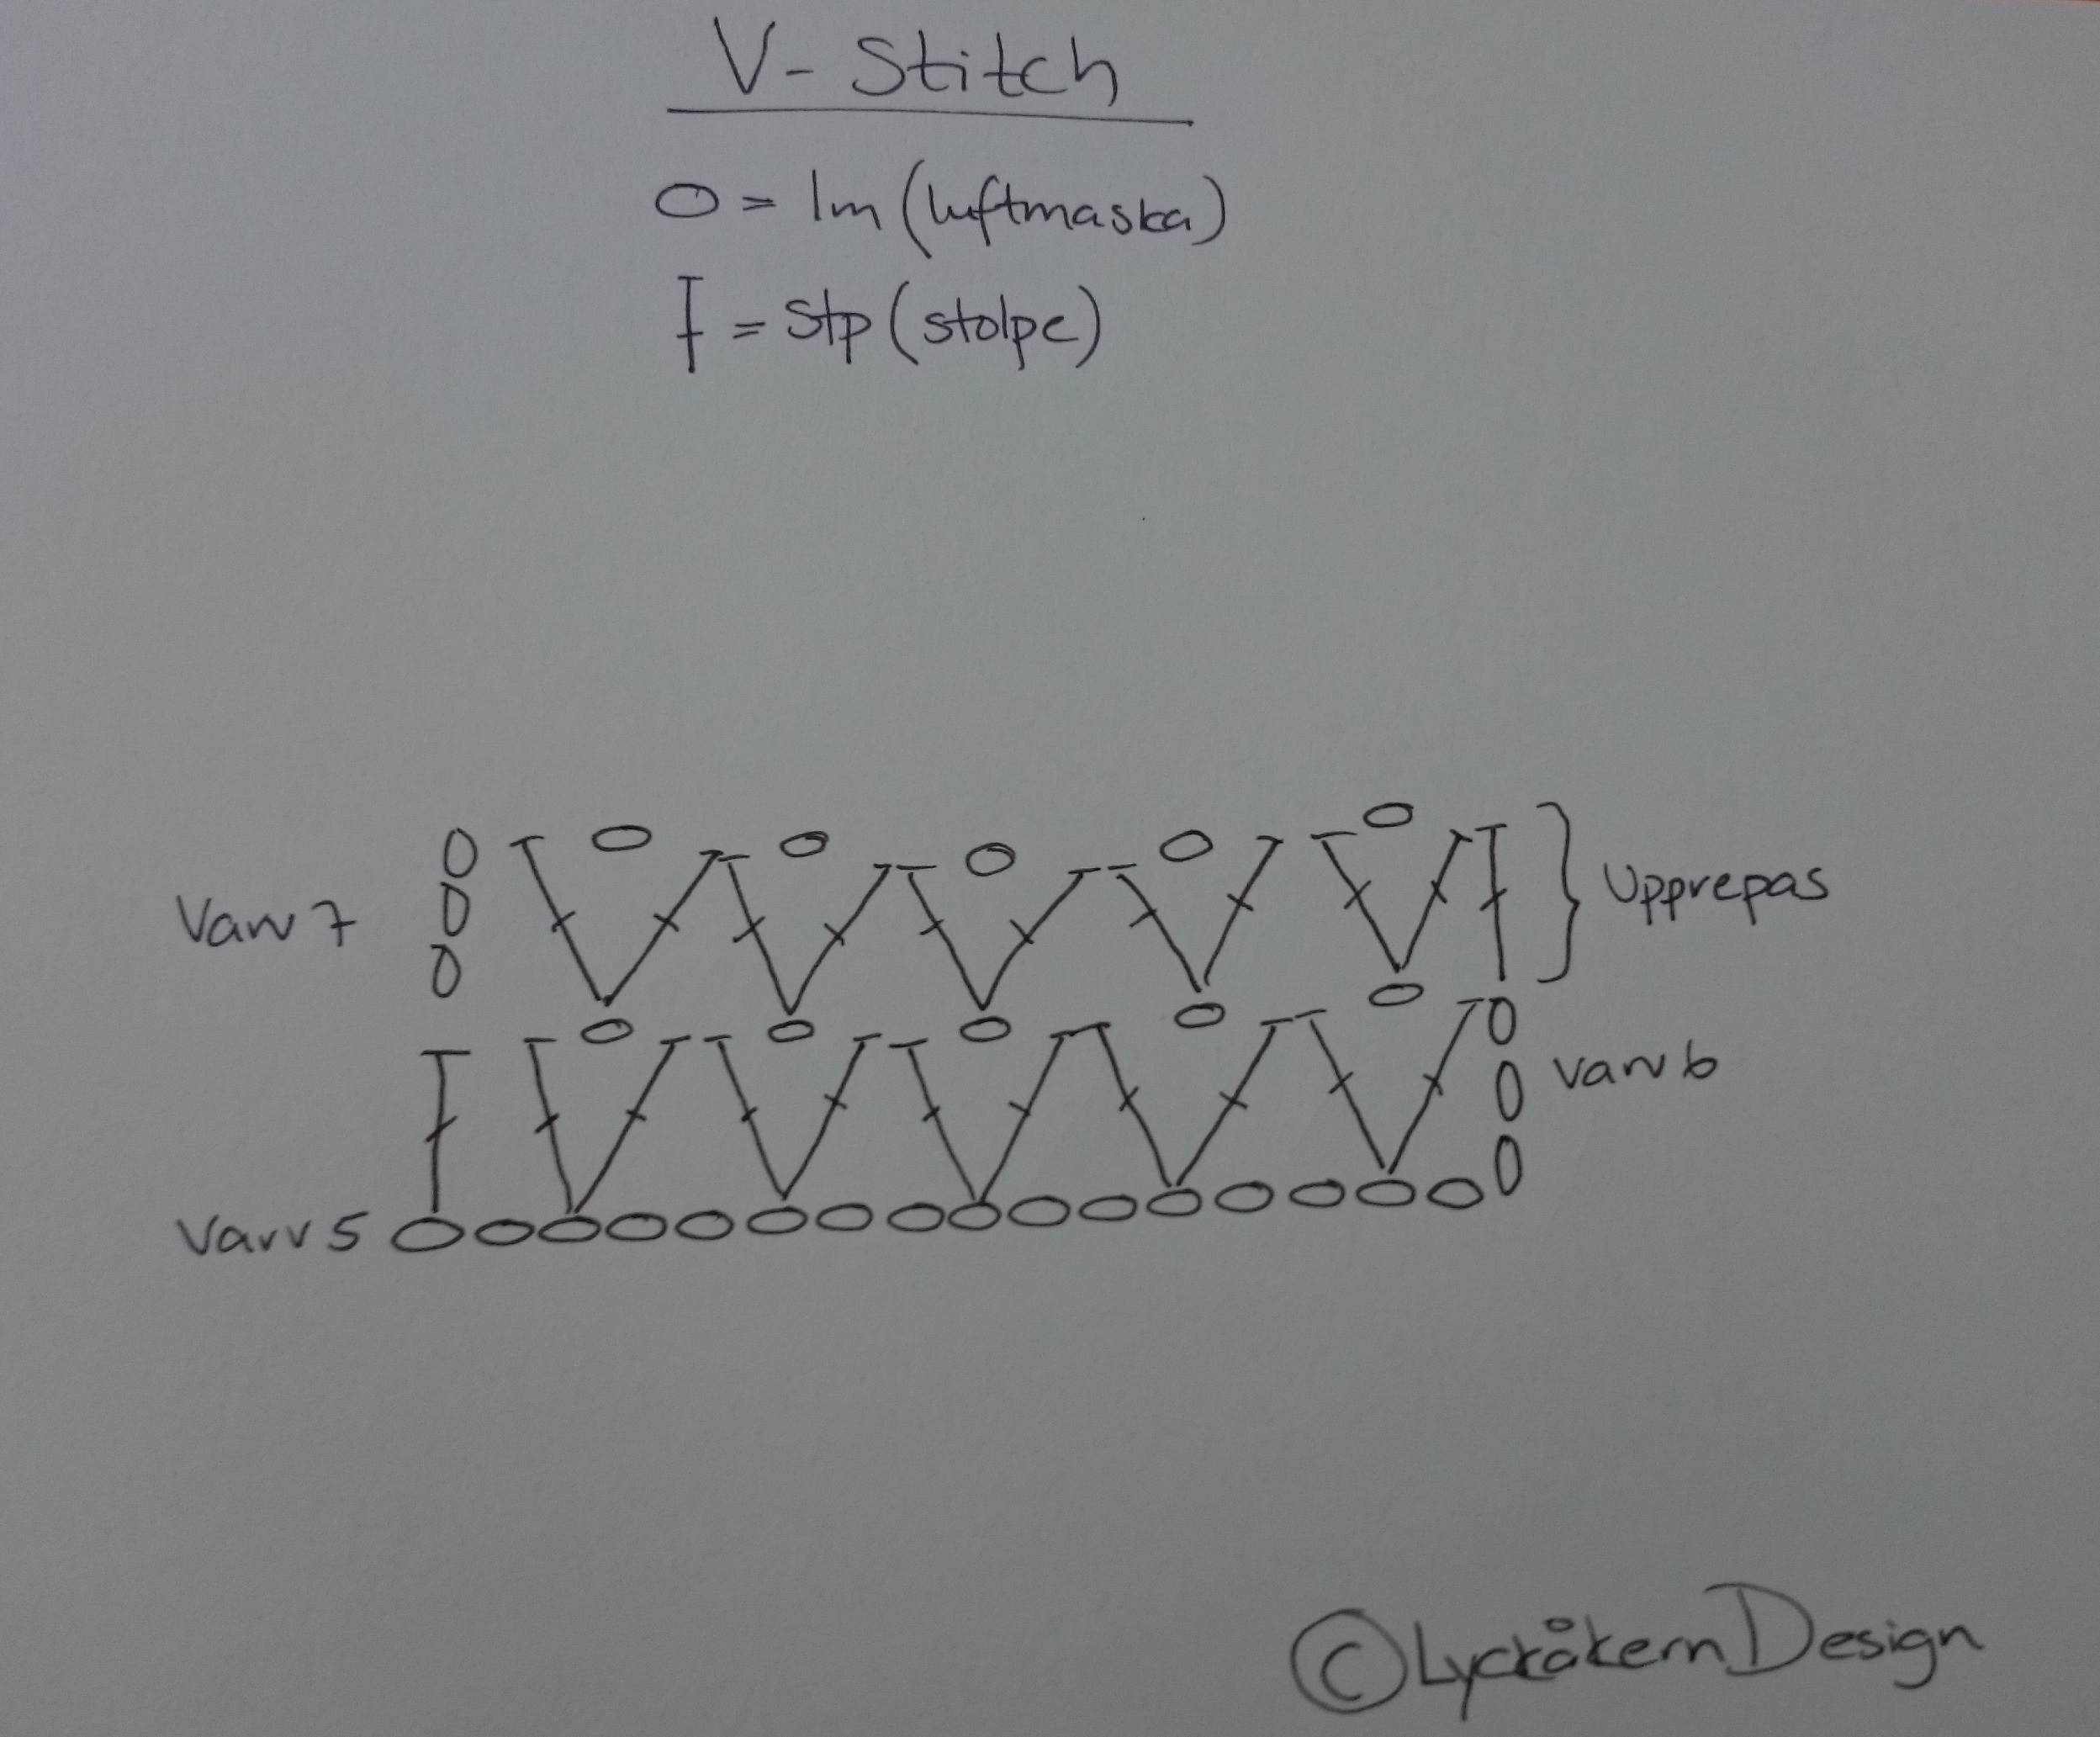 V-Stitch
O = lm (luftmaska)
Ŧ = stp (stolpe)
Varv 7
Upprepas
varv 6
Varv 5
© Lyckåkern Design